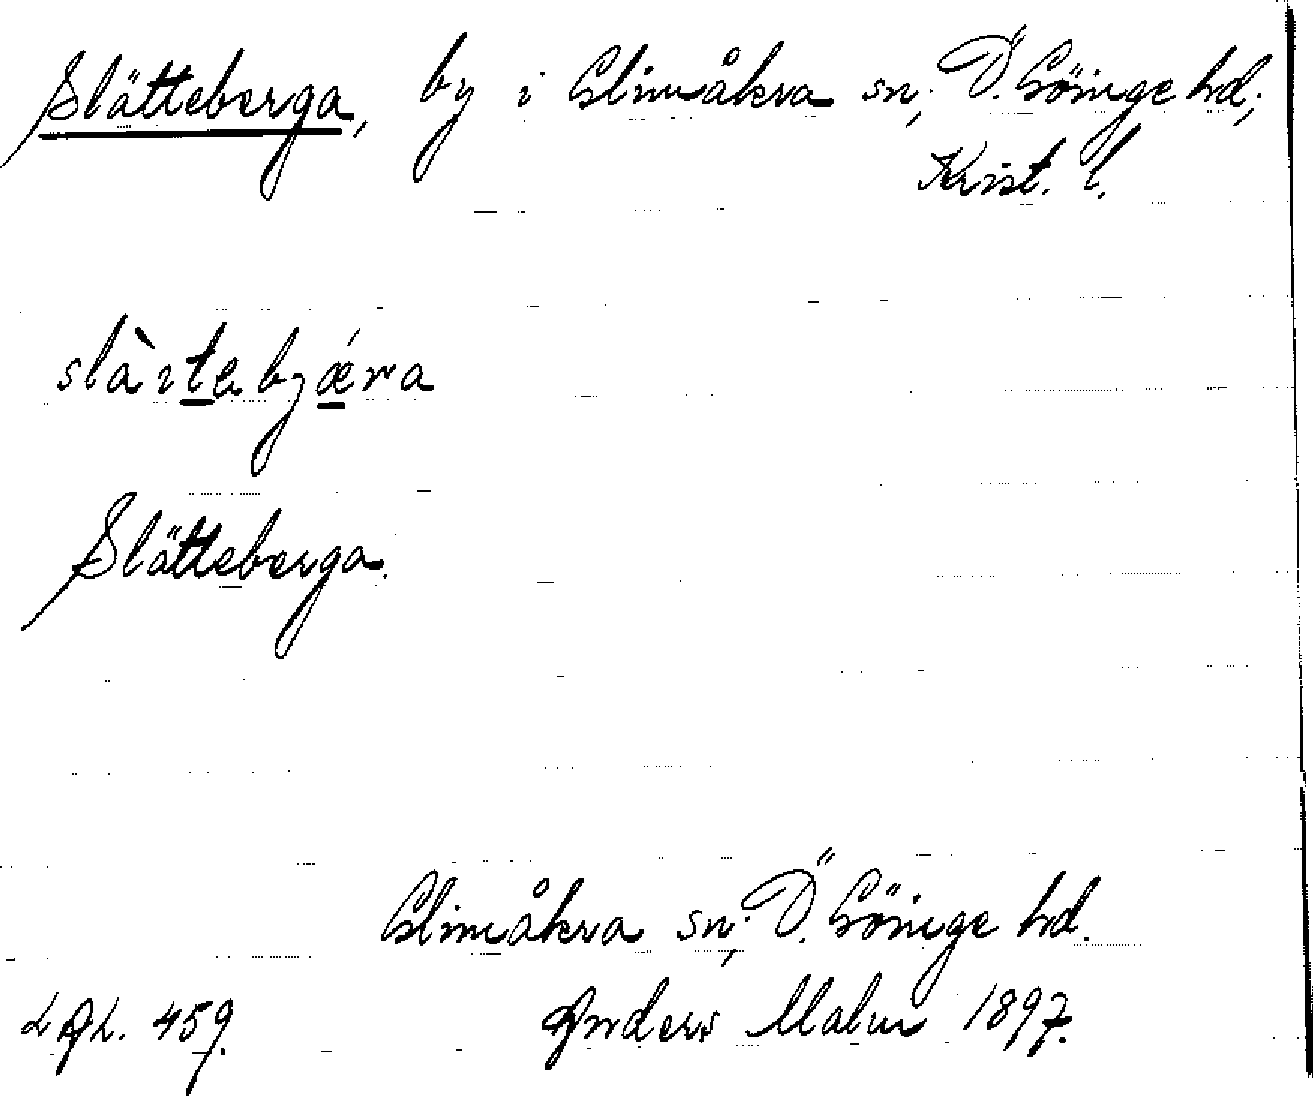 Slätteberga, by i Glimåkra sn, Ö. Göinge hd,
Krist. l.
slàıtebjǽra
Slätteberga.
Glimåkra sn, Ö. Göinge hd.
LAL. 459. Anders Malm 1897.